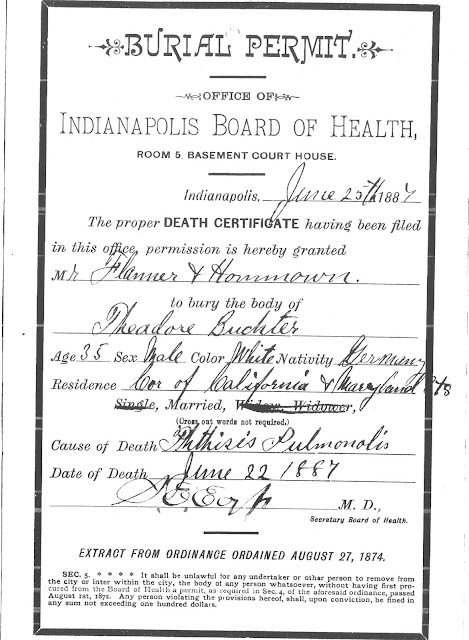 BURIAL PERMIT.
OFFICE OF
INDIANAPOLIS BOARD OF HEALTH,
ROOM 5 BASEMENT COURT HOUSE.
Indianapolis, June 25th 1887
The proper DEATH CERTIFICATE having been filed
in this office, permission is hereby granted
Mr Flanner & Hommown.
to bury the body of
Theadore Buchter
Age 35 Sex Male Color White Nativity Germany
Residence Cor of California & Maryland Sts
Single, Married, Widow, Widower,
(Cross out words not required.)
Cause of Death Phthisis Pulmonolis
Date of Death June 22 1887
M. D.,
Secretary Board of Health.
EXTRACT FROM ORDINANCE ORDAINED AUGUST 27, 1874.
SEC. 5. * * * * It shall be unlawful for any undertaker or other person to remove from
the city or inter within the city, the body of any person whatsoever, without having first pro-
cured from the Board of Health a permit, as required in Sec. 4, of the aforesaid ordinance, passed
August 1st, 1872. Any person violating the provisions hereof, shall, upon conviction, be fined in
any sum not exceeding one hundred dollars.